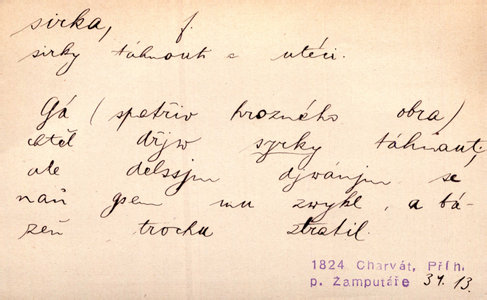 sirka, f.
sirky táhnouti = utéci.
Gá (spatřiv hrozného obra)
chtěl dřjw syrky táhnaut;
ale delssjm djwánjm se
naň gsem mu zwykl, a bá-
zeň trochu ztratil.
1824 Charvát, Příh.
p. Žamputáře 34. 13.